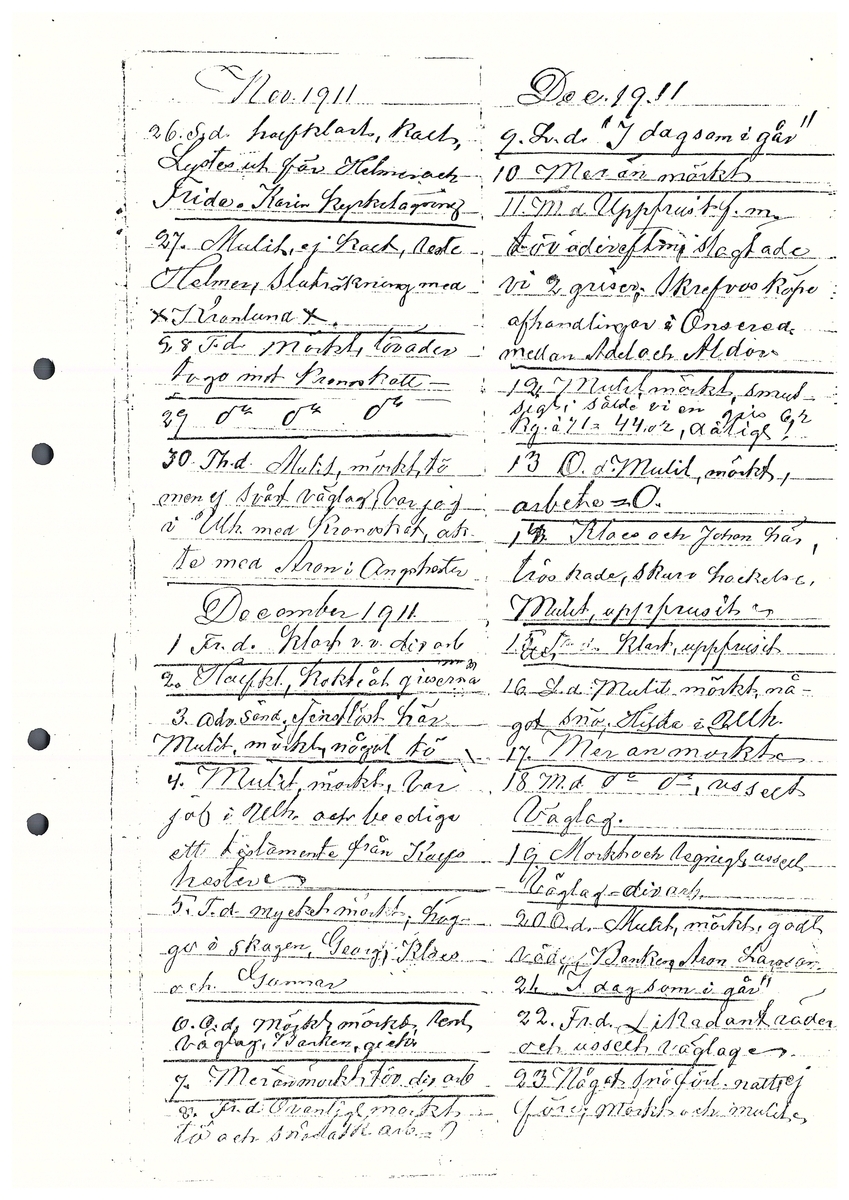 Nov. 1911
26. S.d. halfklart, kallt,
Lystes ut för Helmer och
Frida. Karin kyrktagning
27. Mulit, ej kallt, reste
Helmer, Sluträkning med
x Kronlund x.
28 T.d. Mörkt, töväder
togo mot Kronoskatt –
29 do do do
30 Th.d. Mulit, mörkt, tö
men ej svårt väglag, var jag
i Ulh. med Kronoskat, åk-
te med Aron i
December 1911
1 Fr.d. klart v.v. div arb
2. Halfkl, kokt åt grisarna
3. Adv. Sönd, här
Mulit, mörkt, något tö
4. Mulit, mörkt, var
jag i Ulh. och beediga
ett testamente från
5. T.d. mycket mörkt, hög-
go i skogen, Georg, Klaes
och Gunnar
6. O.d. mörkt, mörkt,
väglag, Banken,
7. Mer än mörkt töv. div arb
8. Fr.d. Ovanligt mörkt
tö och arb. = 0
Dec. 1911
9. L.d. "I dag som i går"
10 Mer än mörkt
11. M.d Uppfrusit f.m.
töväder eftm, slagtade
vi 2 griser, Skrefvos köpe
afhandlingar i Onsered
mellan Adel och Aldor
12. Mulit, mörkt, smut-
sigt, sålde vi en gris 62
Kg. á 71 = 44.02, dåligt!
13 O.d. Mulit, mörkt,
arbete = 0.
14. Klaes och Johan här,
tröskade, skuro hackelse,
Mulit, uppfrusit
15 Klart, uppfrusit
16. L.d. Mulit mörkt, nå-
got snö, Hilda i Ulh.
17. Mer än mörkt
18 M.d do do, usselt
väglag.
19 Mörkt och regnigt, usselt
Väglag – div arb.
20 O.d. Mulit, mörkt, godt
väder, Banken, Aron Larsson
21 "I dag som i går"
22. Fr.d. Likadant väder
och usselt väglag
23 Något snö förl. natt, ej
före, mörkt och mulit